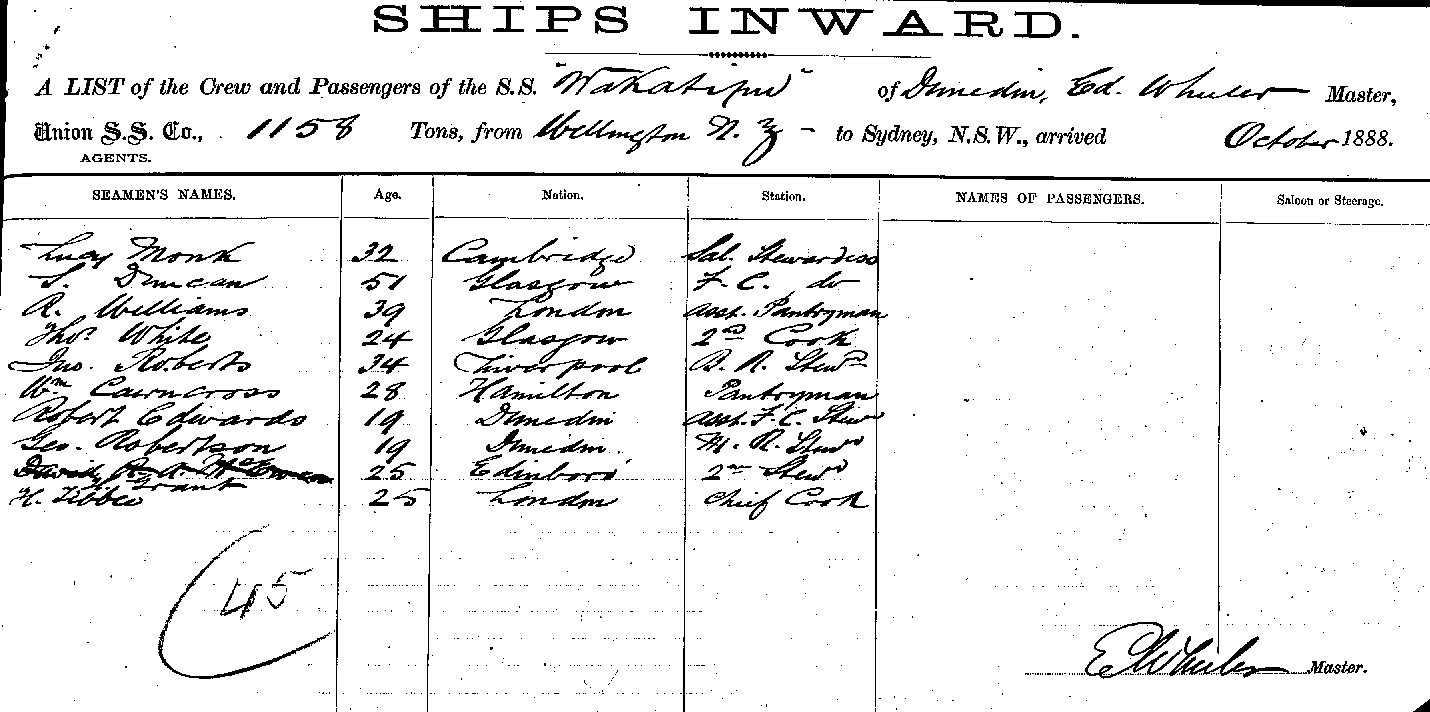 SHIPS INWARD.
A LIST of the Crew and Passengers of the S.S. "Wakatipu" of Dunedin, Ed. Wheeler Master,
Union S.S. Co., 1158 Tons, from Wellington N. Z - to Sydney, N.S.W., arrived October 1888.
AGENTS.
SEAMEN'S NAMES. Age. Nation. Station. NAMES OF PASSENGERS. Saloon or Steerage.
Lucy Monk 32 Cambridge Sal. Stewardess
S. Duncan 51 Glasgow F. C. do
R. Williams 39 London Asst. Pantryman
Thos. White 24 Glasgow 2nd Cook
Jno. Roberts 34 Liverpool B. R. Stewd
Wm Cairncross 28 Hamilton Pantryman
Robert Edwards 19 Dunedin Asst. F. C. Stewd
Geo. Robertson 19 Dunedin. M. R. Stewd
David Grant 25 Edinboro' 2nd Stewd
H. Tibble 25 London Chief Cook
45
E Wheeler Master.